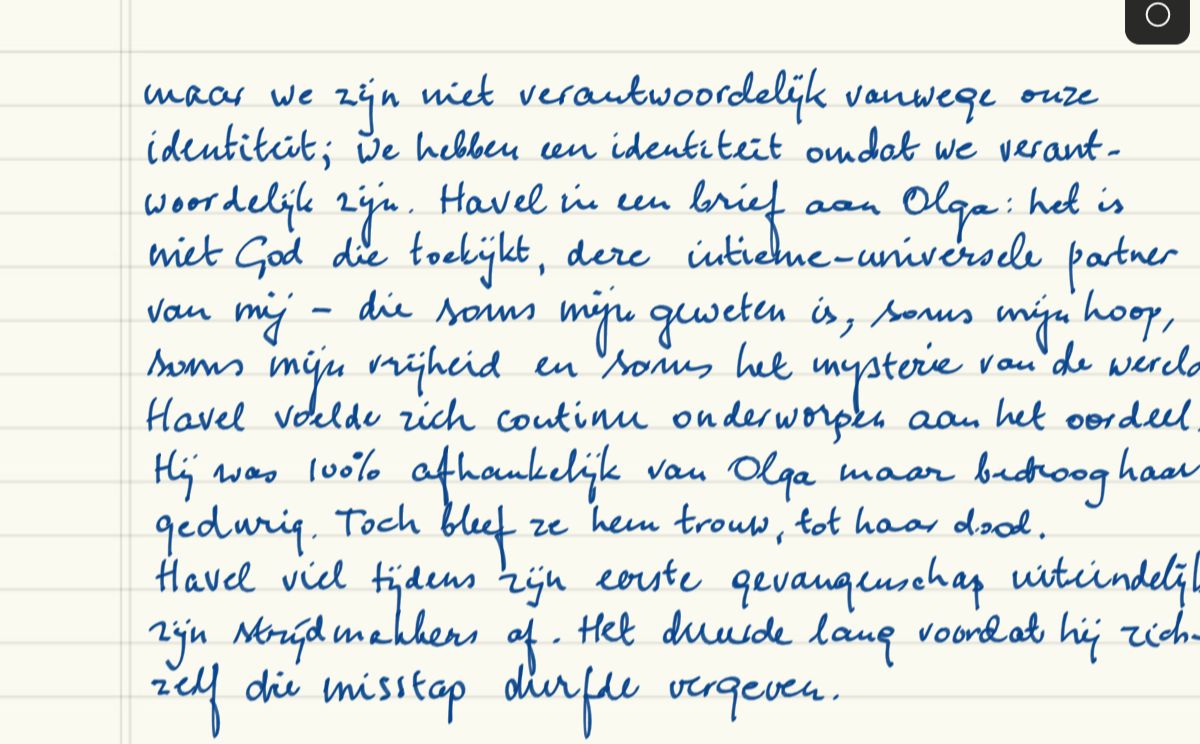 maar we zijn niet verantwoordelijk vanwege onze
identiteit; we hebben een identiteit omdat we verant-
woordelijk zijn. Havel in een brief aan Olga: het is
niet God die toekijkt, deze intieme-universele partner
van mij – die soms mijn geweten is, soms mijn hoop,
soms mijn vrijheid en soms het mysterie van de wereld
Havel voelde zich continu onderworpen aan het oordeel.
Hij was 100% afhankelijk van Olga maar bedroog haar
gedurig. Toch bleef ze hem trouw, tot haar dood.
Havel viel tijdens zijn eerste gevangenschap uiteindelijk
zijn strijdmakkers af. Het duurde lang voordat hij zich-
zelf die misstap durfde vergeven.